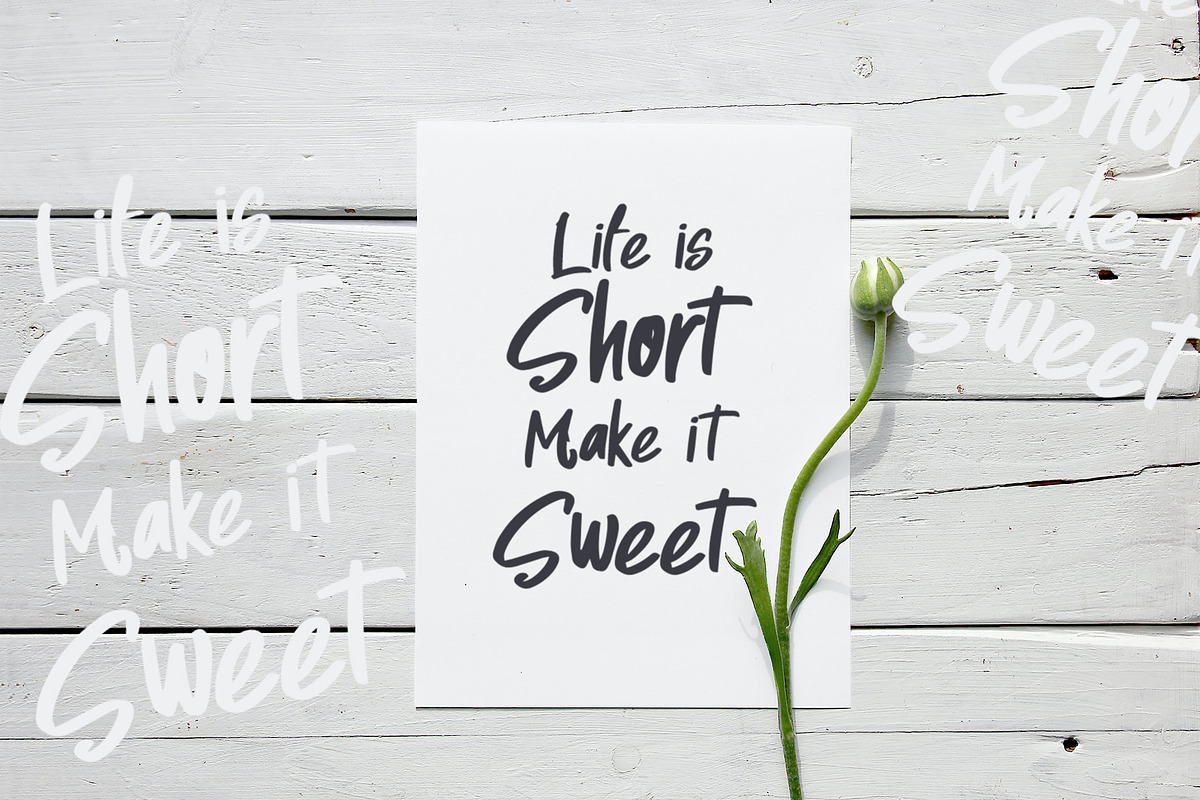 Life is
Short
Make it
Sweet
Life is
Short
Make it
Sweet
Short
Make it
Sweet